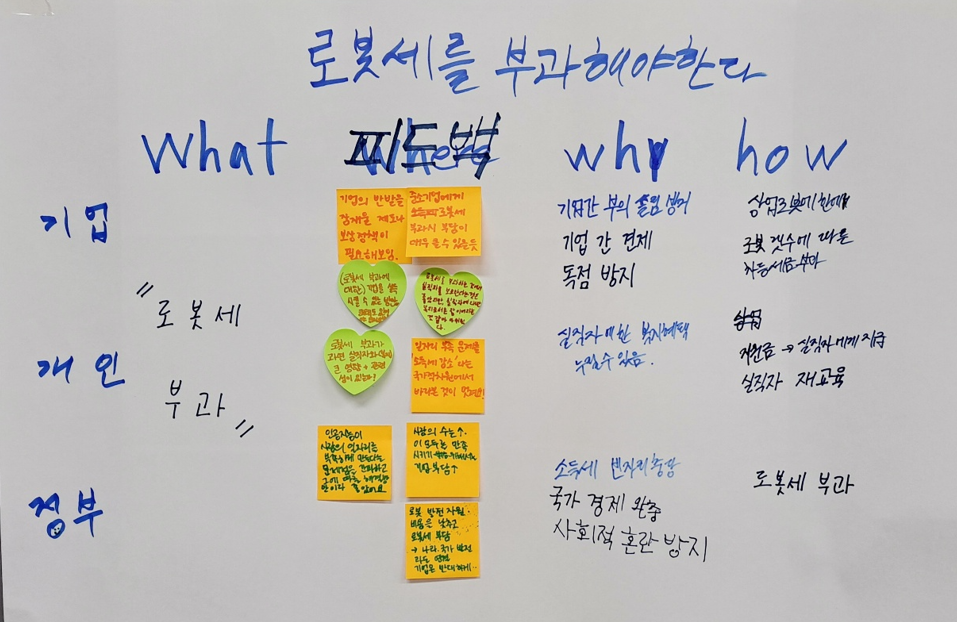 로봇세를 부과해야한다
What 피드백 why how
기업
기업의 반발을
잠재울 제도나
보상 정책이
필요해보임.
중소기업에게
로봇세
부과시 부담이
매우 클 수 있을듯
기업간 부의 쏠림
기업 간 경제
독점 방지
상업로봇에 한해
로봇 갯수에 따른
차등세금부과
(로봇세 부과에
대한) 기업을 설득
시킬 수 있는 방안
"로봇세
부과"
개인
로봇세 부과가
과연 실직자와
큰 영향 + 관련
성이 있는가?
일자리 부족 문제를
'소득세 감소' 라는
국가적차원에서
바라본 것이
실직자에 한 복지혜택
누릴 수 있음.
지원금 → 실직자에게 지급
실직자 재교육
정부
인공지능이
사람의 일자리를
부족하게 만든다는
문제점은
사람의 수는↑.
이 모두를 만족
시키기
기업부담↑
로봇 발전 지원.
비용은 낮추고
로봇세 부담
→ 나라. 국가 발전
기업은 반대하게..
소득세 빈자리충당
국가 경제 완충
사회적 혼란 방지
로봇세 부과